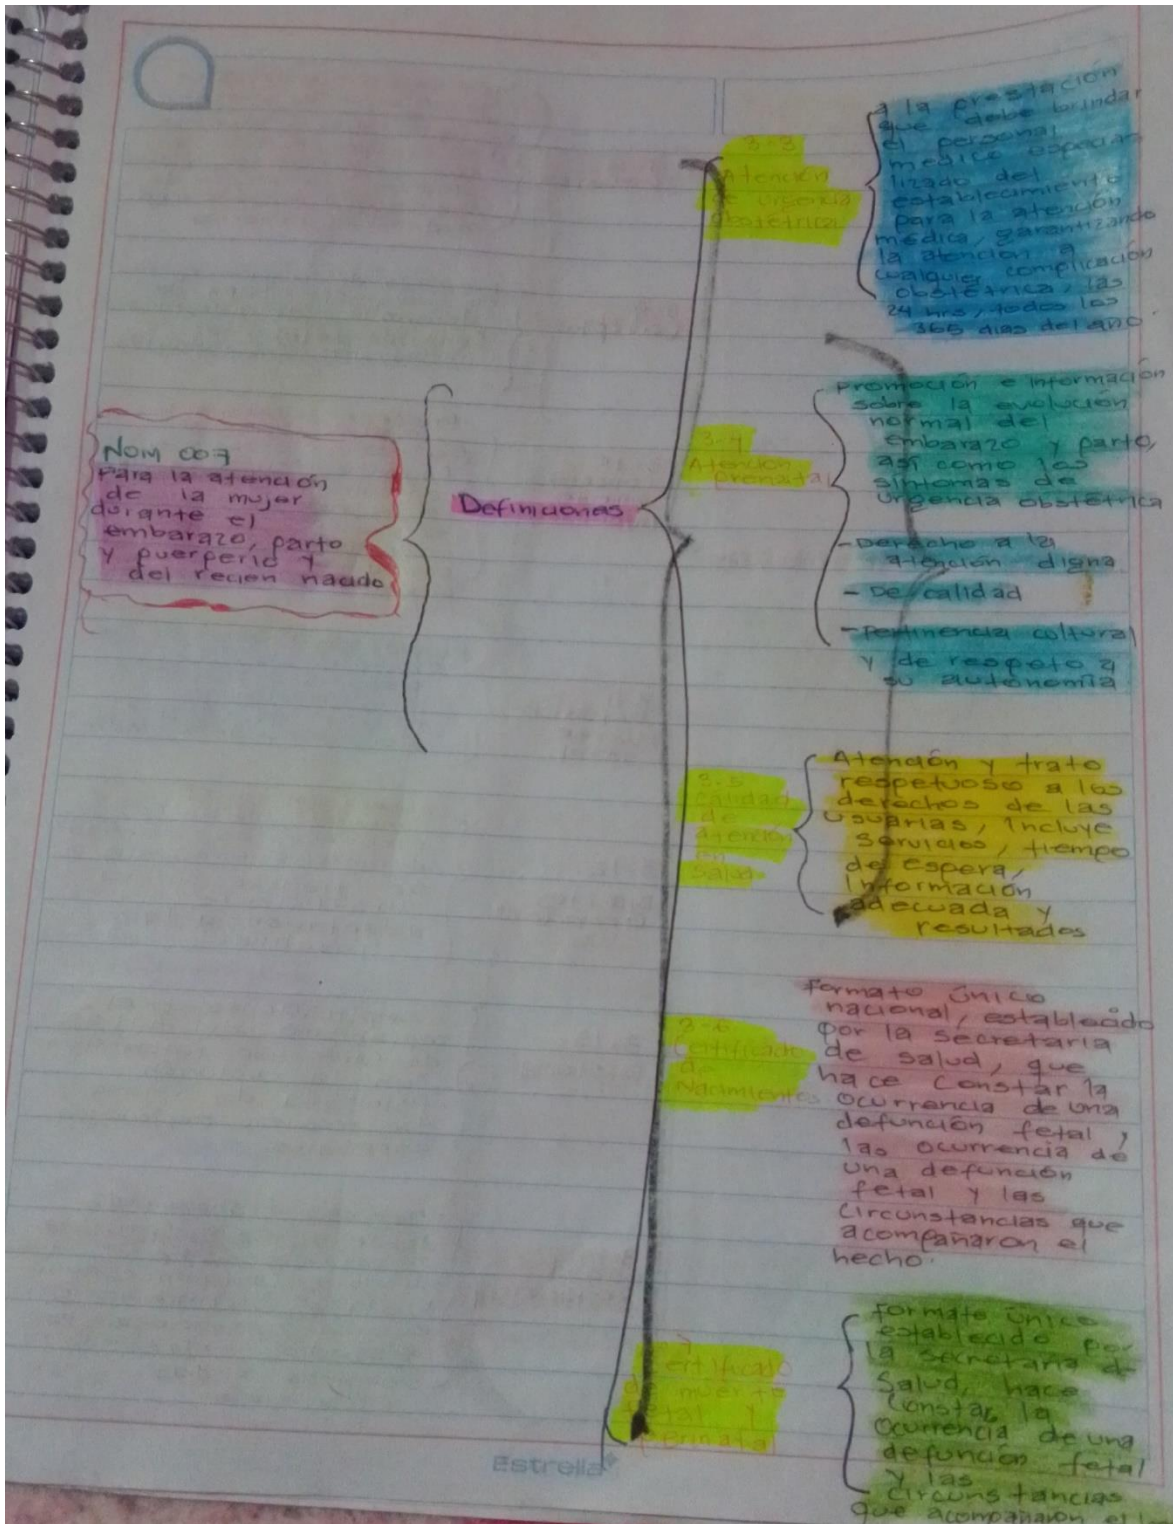 NOM 007
Para la atención
de la mujer
durante el
embarazo, parto
y puerperio y
del recien nacido
Definiciones
3-3
Atención
de urgencia
obstétrica
a la prestación
que debe brindar
el personal
médico especia
lizado del
establecimiento
para la atención
médica, garantizando
la atención a
cualquier complicación
obstétrica, las
24 hrs, todos los
365 dias del año.
3-4
Atención
prenatal
Promoción e información
sobre la evolución
normal del
embarazo y parto,
así como los
síntomas de
urgencia obstétrica
- Derecho a la
atención digna
- De calidad
- Pertinencia cultural
y de respeto a
su autonomía
3-5
calidad
de
atención
en
salud
Atención y trato
respetuoso a los
derechos de las
usuarias, incluye
servicios, tiempo
de espera,
información
adecuada y
resultados
3-6
Certificado
de
Nacimientos
Formato único
nacional, establecido
por la secretaria
de salud, que
hace constar la
ocurrencia de una
defunción fetal,
las ocurrencia de
una defunción
fetal y las
circunstancias que
acompañaron el
hecho.
certificado
muerte
fetal y
perinatal
Formato único
establecido por
la secretaria de
Salud, hace
constar la
ocurrencia de una
defunción fetal
y las
circunstancias
que acompañaron el
Estrella